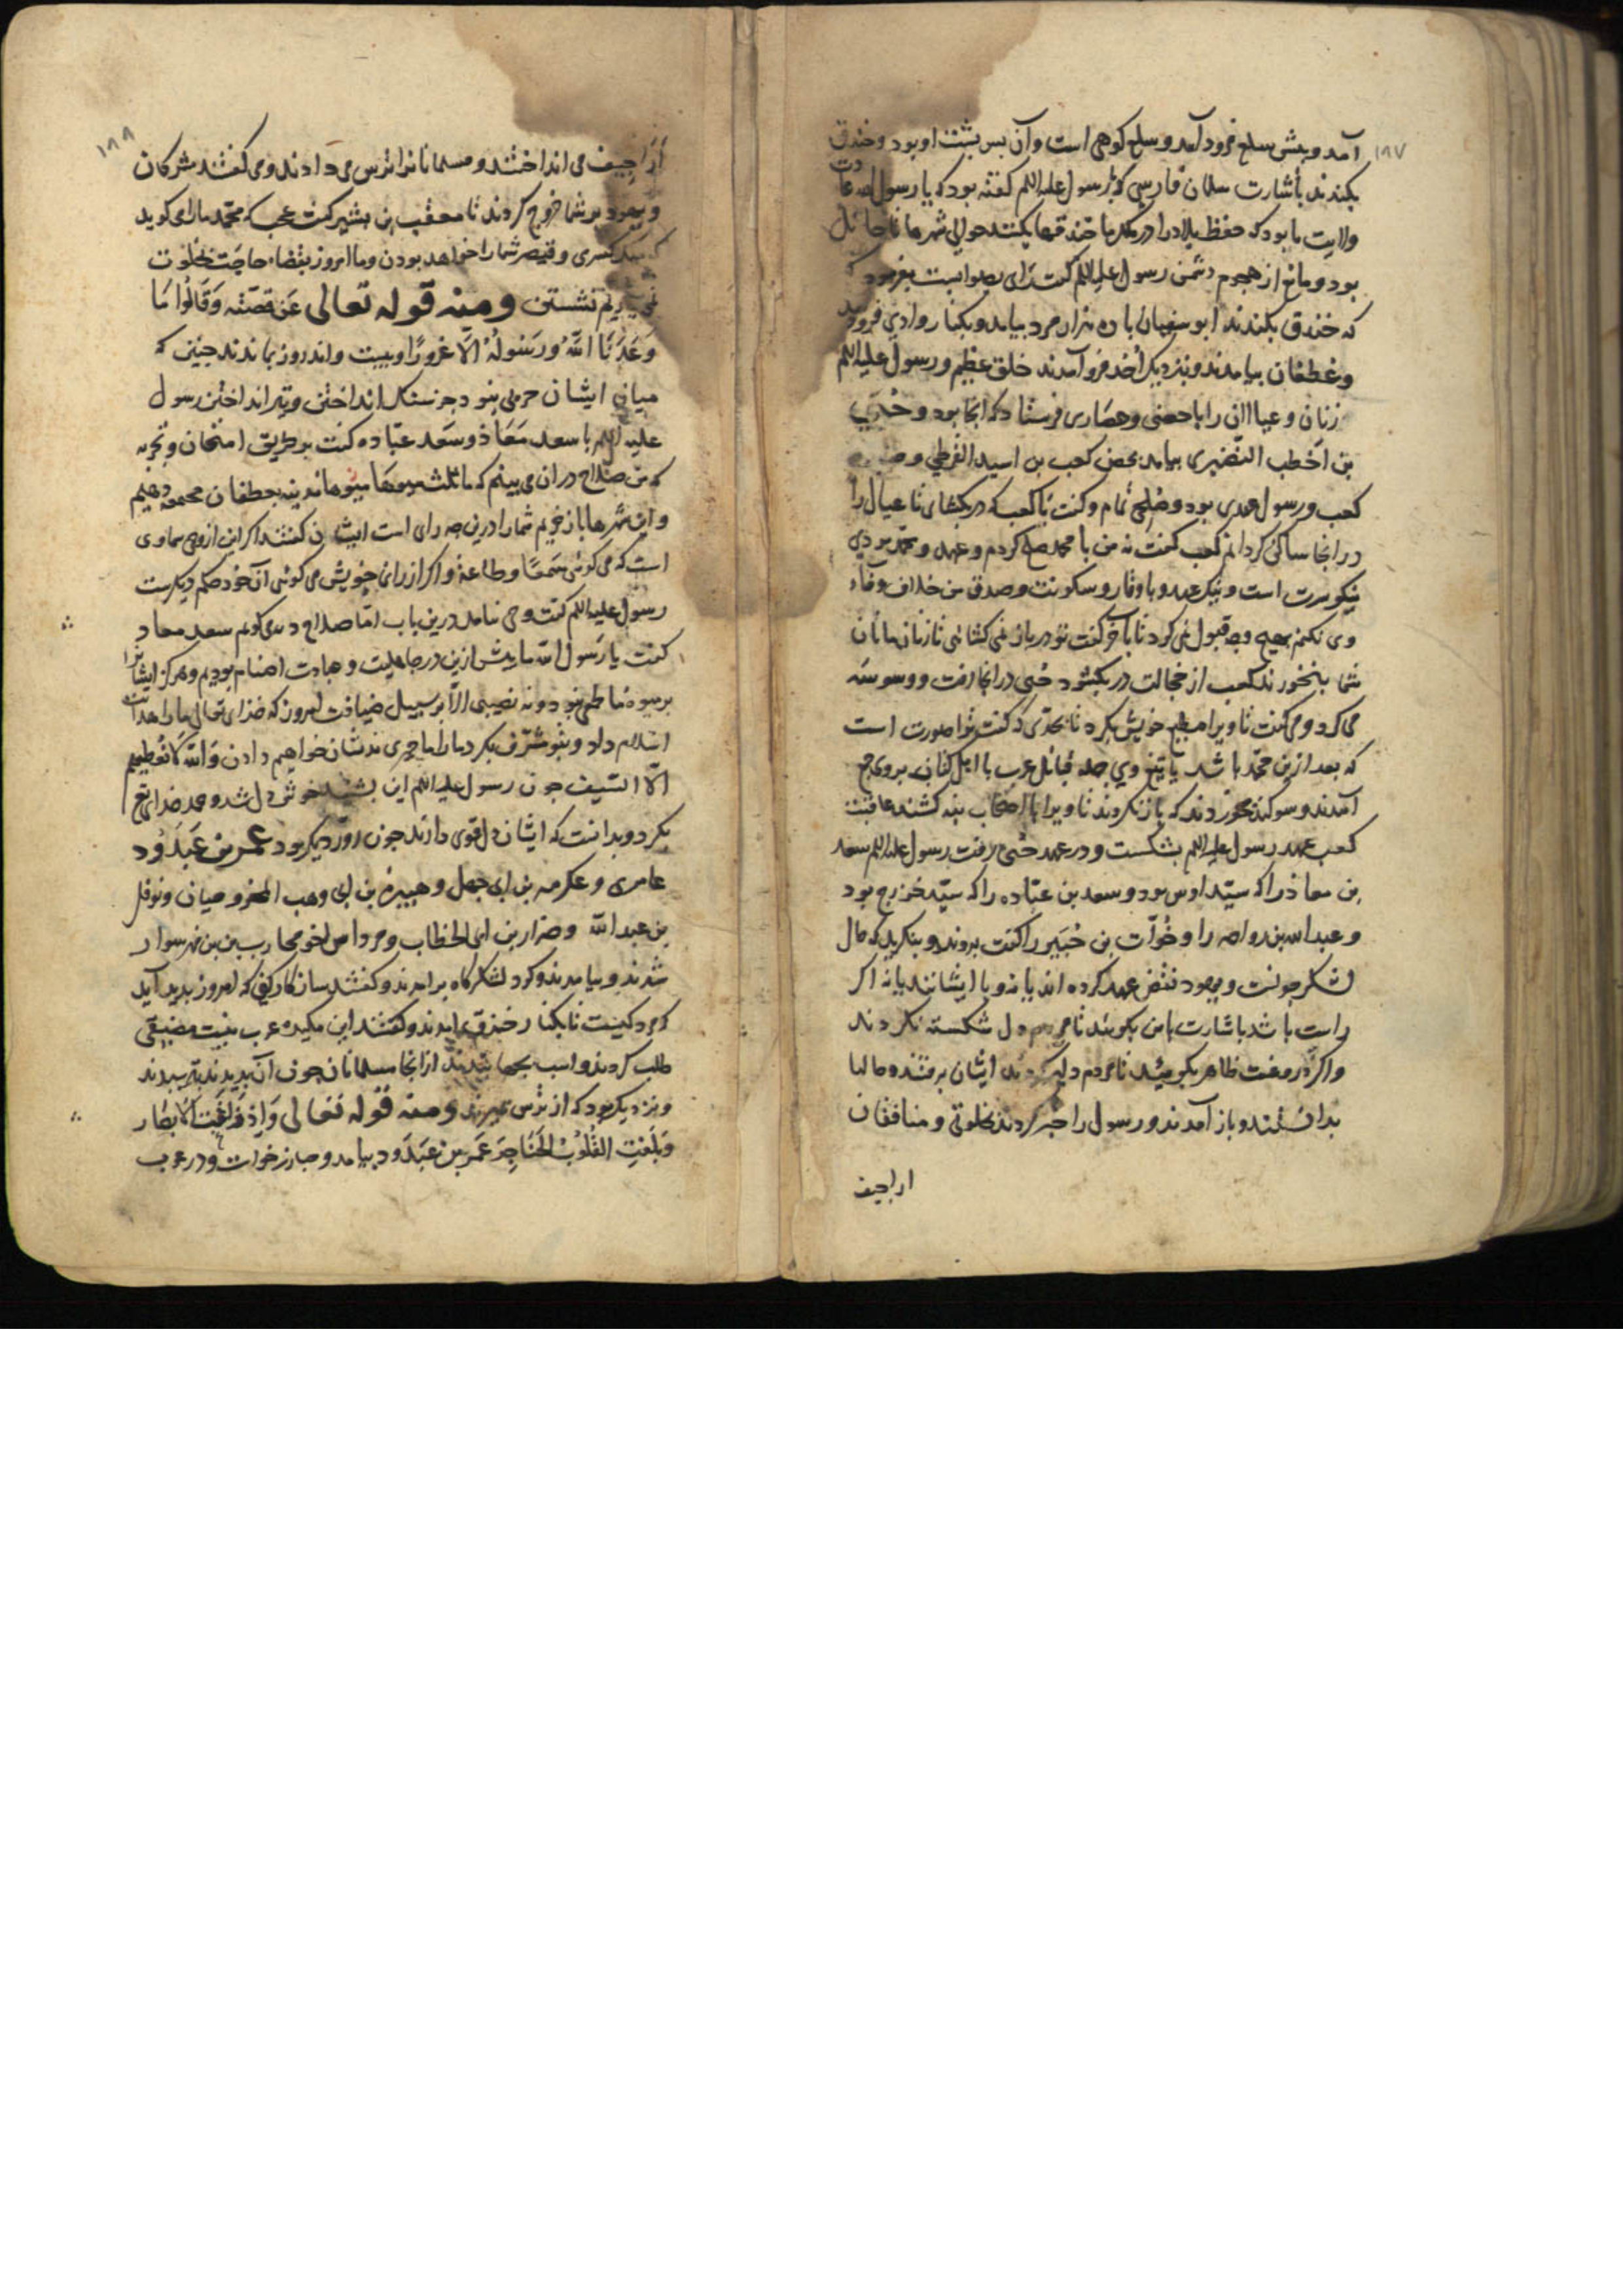 ۱۸۷
آمد و پیش سلع فرود آمد و سلع کوهی است و آن پس پشت او بود و خندق
بکندند باشارت سلمان فارسی که با رسول علیه السلم گفته بود که یا رسول الله عادت
ولایت ما بود که حفظ بلاد را در خندقها بکنند حوالی شهرها تا حائل
بود و مانع از هجوم دشمن رسول علیه السلم گفت رای بصوابست بفرمود
که خندق بکندند ابو سفیان با ده هزار مرد بیامد و بکنار وادی فرود
و غطفان بیامدند و بنزدیک احد فرو آمدند خلق عظیم و رسول علیه السلم
زنان و عیالان را با حصنی و حصاری فرستاد که آنجا بود و حیی
بن اخطب النضیری بیامد بحصن کعب بن اسید القرظی و
کعب و رسول عهدی بود و صلحی تمام و گفت یا کعب در بکشای تا عیال را
در آنجا ساکن گردانم کعب گفت نه من با محمد صلح کردم و عهد و محمد مردی
نیکو سیرت است و نیک عهد و با وقار و سکونت و صدق من خلاف وفاء
وی نکنم بهیچ وجه قبول نمی کرد تا بآخر گفت تو در باز نمی کشائی تا ز نان ما نان
شما بنخورند کعب از خجالت در بکشود حیی در آنجا رفت و وسوسه
می کرد و می گفت تا ویرا مطیع خویش بکرد تا بحدی که گفت ترا صورت است
که بعد ازین محمد باشد یا تیغ وی جمله قبائل عرب با اهل کنانه بروی جمع
آمدند و سوکند بخوردند که باز نکردند تا ویرا با اصحاب بنه کشند عاقبت
کعب عهد رسول علیه السلم بشکست و در عهد حیی رفت رسول علیه السلم سعد
بن معاذ را که سید اوس بود و سعد بن عباده را که سید خزرج بود
و عبد الله بن رواحه را و خوات بن جبیر را گفت بروند و بنکرید که حال
لشکر چونست و یهود نقض عهد کرده اند یا نه و با ایشانند یا نه اکر
راست باشد باشارت با من بکویید تا مردم دل شکسته نکردند
و اکر دروغست ظاهر بکویید تا مردم دلیر کردند ایشان برفتند و حالها
بدانستند و باز آمدند و رسول را خبر کردند بخلوتی و منافقان
اراجیف
۱۸۸
اراجیف می انداختند و مسلمانانرا ترس می دادند و می گفتند مشرکان
و یهود بر شما خروج کردند تا معقب بن بشیر گفت عجب که محمد ما را می گوید
که ملک کسری و قیصر شما را خواهد بودن و ما امروز بقضاء حاجت بخلوت
نمی یاریم نشستن ومنه قوله تعالی عن قصته وقالوا ما
وعدنا الله ورسوله الا غرورا و بیست و اند روز بماندند چنین که
میان ایشان حربی نبود جز سنک انداختن و تیر انداختن رسول
علیه السلم با سعد معاذ و سعد عباده گفت بر طریق امتحان و تجربه
که من صلاح در آن می بینم که ما ثلث میوهاء مدینه بغطفان دهیم
و این شرها باز خریم شما را درین چه رای است ایشان گفتند اکر این از وحی سماوی
است که می گوئی سمعا و طاعة و اکر از رای خویش می گوئی آن خود حکم دیکرست
رسول علیه السلم گفت وحی نیامد درین باب اما صلاح دید می گویم سعد معاذ
گفت یا رسول الله ما پیش ازین در جاهلیت و عبادت اصنام بودیم و هرکز ایشانرا
بر میوه ما طمع نبود و نه نصیبی الا بر سبیل ضیافت امروز که خدای تعالی ما را هدایت
اسلام داد و بتو مشرف بکرد ما را ما چیزی بدیشان خواهیم دادن والله لا نعطیهم
الا السیف چون رسول علیه السلم این بشنید خوش دل شد و حمد خدای تع
بکرد و بدانست که ایشان دل قوی دارند چون روز دیکر بود عمر بن عبدود
عامری و عکرمه بن ابی جهل و هبیره بن ابی وهب المخزومیان و نوفل
بن عبد الله و ضرار بن ابی الخطاب و مرداس اخو محارب بن فهر سوار
شدند و بیامدند و کرد لشکرگاه برامدند و گفتند که امروز پدید آید
که مرد کیست تا بکنار خندق بیامدند و گفتند این مکیده عرب نیست مضیقی
طلب کردند و اسب بجهانیدند از آنجا مسلمانان چون آن بدیدند بترسیدند
و نزدیک بود که از ترس بمیرند ومنه قوله تعالی واذ زاغت الابصار
وبلغت القلوب الحناجر عمر بن عبدود بیامد و مبارز خواست و در عرب